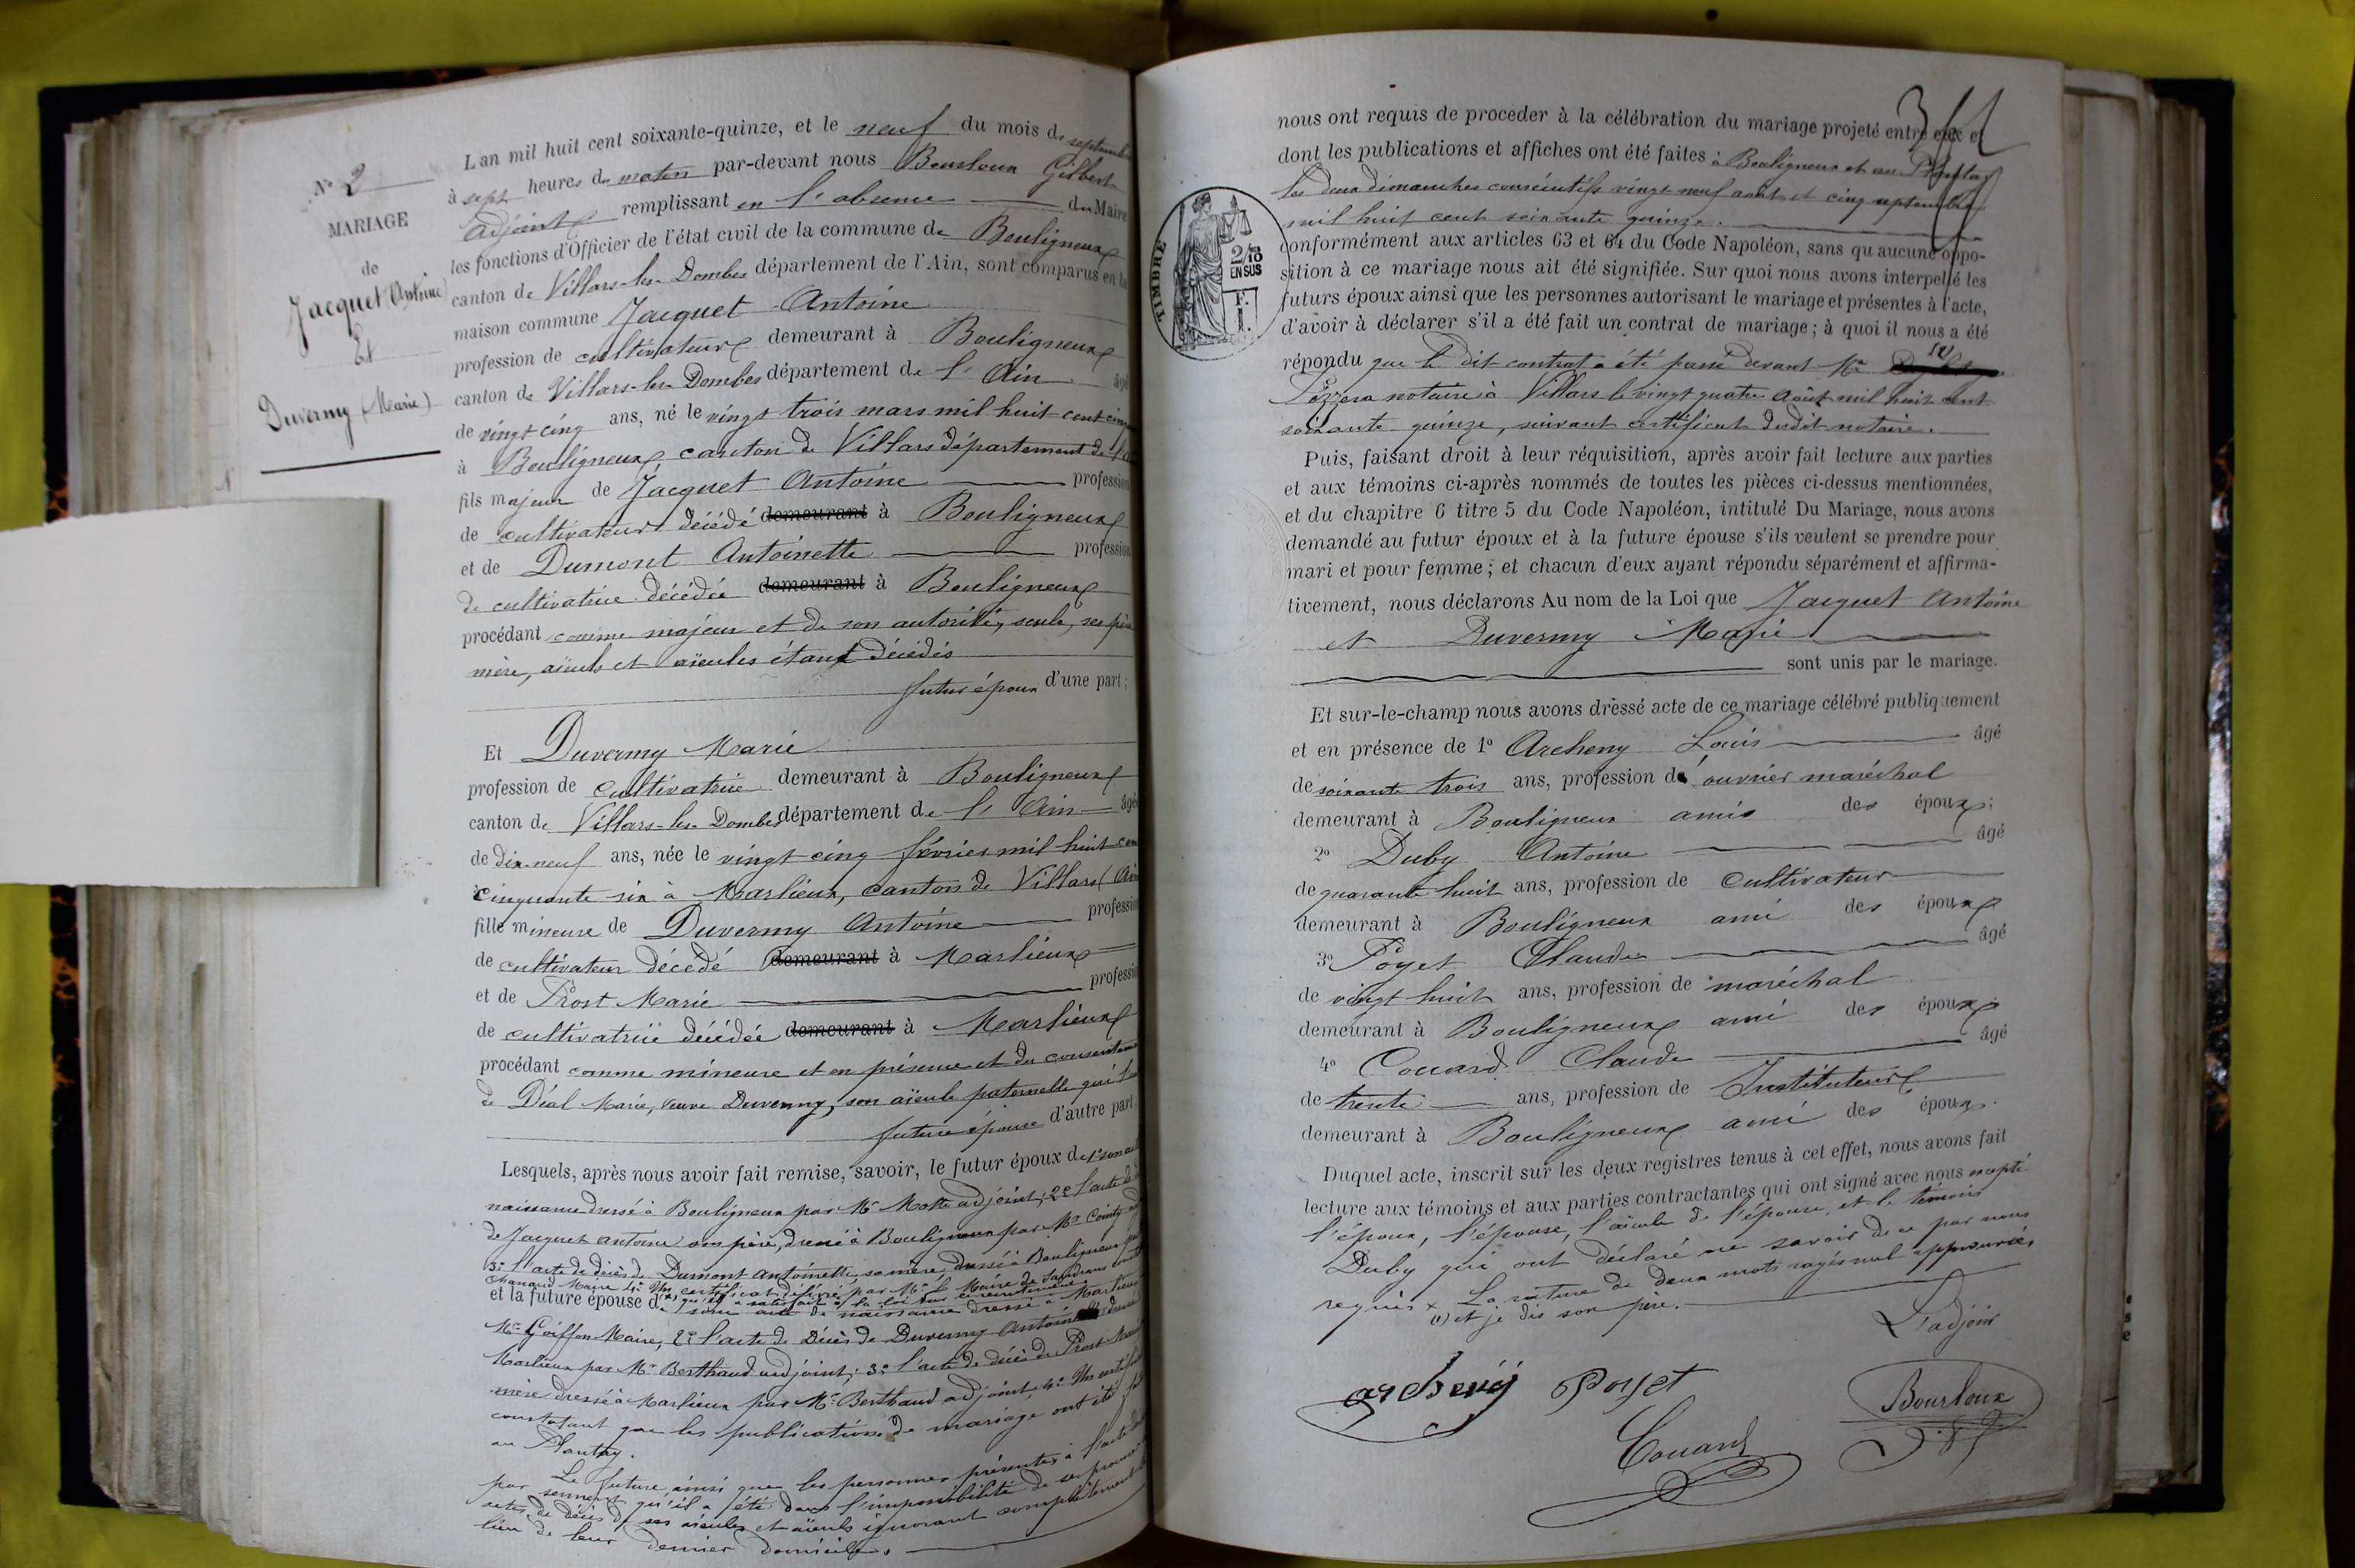 N° 2
MARIAGE
de
Jacquet (Antoine)
Et
Duverny (Marie)
L'an mil huit cent soixante-quinze, et le neuf du mois de septembre
à sept heures du matin par-devant nous Bourloux Gilbert
adjoint remplissant en l'absence du Maire
les fonctions d'Officier de l'état civil de la commune de Bouligneux
canton de Villars-les-Dombes département de l'Ain, sont comparus en la
maison commune Jacquet Antoine
profession de cultivateur demeurant à Bouligneux
canton de Villars-les-Dombes département de l'Ain âgé
de vingt cinq ans, né le vingt trois mars mil huit cent cinq
à Bouligneux canton de Villars département de l'Ain
fils majeur de Jacquet Antoine profession
de cultivateur décédé demeurant à Bouligneux
et de Dumont Antoinette profession
de cultivatrice décédée demeurant à Bouligneux
procédant comme majeur et de son autorité, seule, ses père
mère, aïeuls et aïeules étant décédés
futur époux d'une part;
Et Duverny Marie
profession de cultivatrice demeurant à Bouligneux
canton de Villars-les-Dombes département de l'Ain âgée
de dix-neuf ans, née le vingt cinq février mil huit cent
cinquante six à Marlieux, canton de Villars (Ain
fille mineure de Duverny Antoine profession
de cultivateur décédé demeurant à Marlieux
et de Prost Marie profession
de cultivatrice décédée demeurant à Marlieux
procédant comme mineure et en présence et du consentement
de Déal Marie, veuve Duverny, son aïeule paternelle
future épouse d'autre part.
Lesquels, après nous avoir fait remise, savoir, le futur époux de 1° son acte
naissance dressé à Bouligneux par Mr Motte adjoint; 2° l'acte de
de Jacquet Antoine son père, dressé à Bouligneux par Mr
3° l'acte de décès de Dumont Antoinette, sa mère dressé à Bouligneux par
Maire 4° Un certificat délivré par Mr le Maire de
qu'il a satisfait à la loi sur le recrutement
et la future épouse de son acte de naissance dressé à Marlieux
Mr Goiffon Maire, 2° l'acte de décès de Duverny Antoine dressé
Marlieux par Mr Berthaud adjoint; 3° l'acte de décès de Prost Marie
mère dressé à Marlieux par Mr Berthaud adjoint 4° Un certificat
constatant que les publications de mariage ont été
au Plantay.
Le future ainsi que les personnes présentes à l'acte
par serment qu'il a été dans l'impossibilité de se procurer
actes de décès de ses aïeules et aïeuls ignorant complètement le
lieu de leur dernier domicile.
nous ont requis de procéder à la célébration du mariage projeté entre eux et
dont les publications et affiches ont été faites à Bouligneux et au Plantay
les deux dimanches consécutifs vingt neuf août et cinq septembre
mil huit cent soixante quinze.
TIMBRE
2/10
EN SUS
conformément aux articles 63 et 64 du Code Napoléon, sans qu'aucune oppo-
sition à ce mariage nous ait été signifiée. Sur quoi nous avons interpellé les
futurs époux ainsi que les personnes autorisant le mariage et présentes à l'acte,
d'avoir à déclarer s'il a été fait un contrat de mariage; à quoi il nous a été
répondu que le dit contrat a été passé devant Me
notaire à Villars le vingt quatre Août mil huit cent
soixante quinze, suivant certificat dudit notaire.
Puis, faisant droit à leur réquisition, après avoir fait lecture aux parties
et aux témoins ci-après nommés de toutes les pièces ci-dessus mentionnées,
et du chapitre 6 titre 5 du Code Napoléon, intitulé Du Mariage, nous avons
demandé au futur époux et à la future épouse s'ils veulent se prendre pour
mari et pour femme; et chacun d'eux ayant répondu séparément et affirma-
tivement, nous déclarons Au nom de la Loi que Jacquet Antoine
et Duverny Marie
sont unis par le mariage.
Et sur-le-champ nous avons dressé acte de ce mariage célébré publiquement
et en présence de 1° Archeny Louis âgé
de soixante trois ans, profession de ouvrier maréchal
demeurant à Bouligneux amis des époux;
2° Duby Antoine âgé
de quarante huit ans, profession de Cultivateur
demeurant à Bouligneux ami des époux
3° Poyet Claude âgé
de vingt huit ans, profession de maréchal
demeurant à Bouligneux ami des époux
4° Couard Claude âgé
de trente ans, profession de Instituteur
demeurant à Bouligneux ami des époux.
Duquel acte, inscrit sur les deux registres tenus à cet effet, nous avons fait
lecture aux témoins et aux parties contractantes qui ont signé avec nous excepté
l'époux, l'épouse, l'aïeule de l'épouse, et le témoin
Duby qui ont déclaré ne savoir de ce par nous
requis. La rature de deux mots rayés nul approuvée.
(1) et je dis son père.
L'adjoint
archeny Poyet Bourloux
Couard